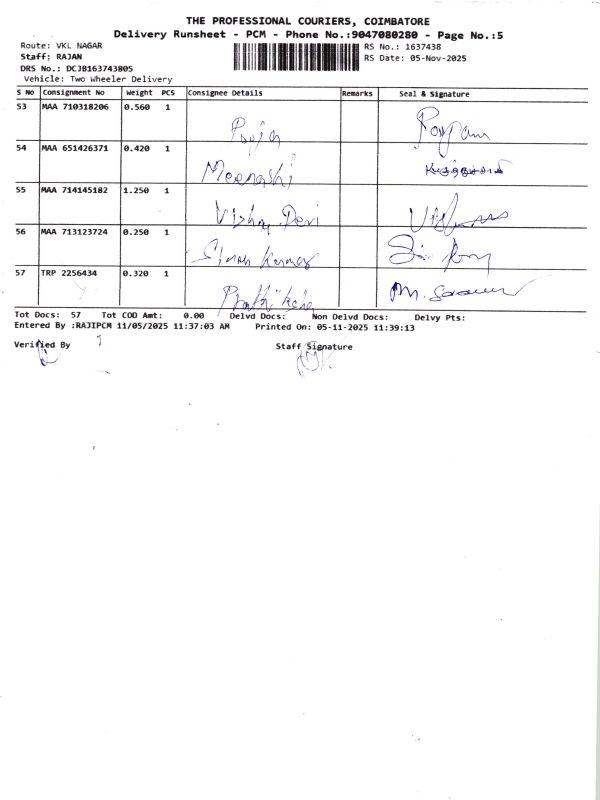 THE PROFESSIONAL COURIERS, COIMBATORE
Delivery Runsheet - PCM - Phone No.:9047080280 - Page No.:5
Route: VKL NAGAR RS No.: 1637438
Staff: RAJAN RS Date: 05-Nov-2025
DRS No.: DCJB163743805
Vehicle: Two Wheeler Delivery
S No Consignment No Weight PCS Consignee Details Remarks Seal & Signature
53 MAA 710318206 0.560 1
Pooja
54 MAA 651426371 0.420 1
Meenashi
55 MAA 714145182 1.250 1
Vishnu Devi
56 MAA 713123724 0.250 1
Kumar
57 TRP 2256434 0.320 1
Tot Docs: 57 Tot COD Amt: 0.00 Delvd Docs: Non Delvd Docs: Delvy Pts:
Entered By :RAJIPCM 11/05/2025 11:37:03 AM Printed On: 05-11-2025 11:39:13
Verified By Staff Signature